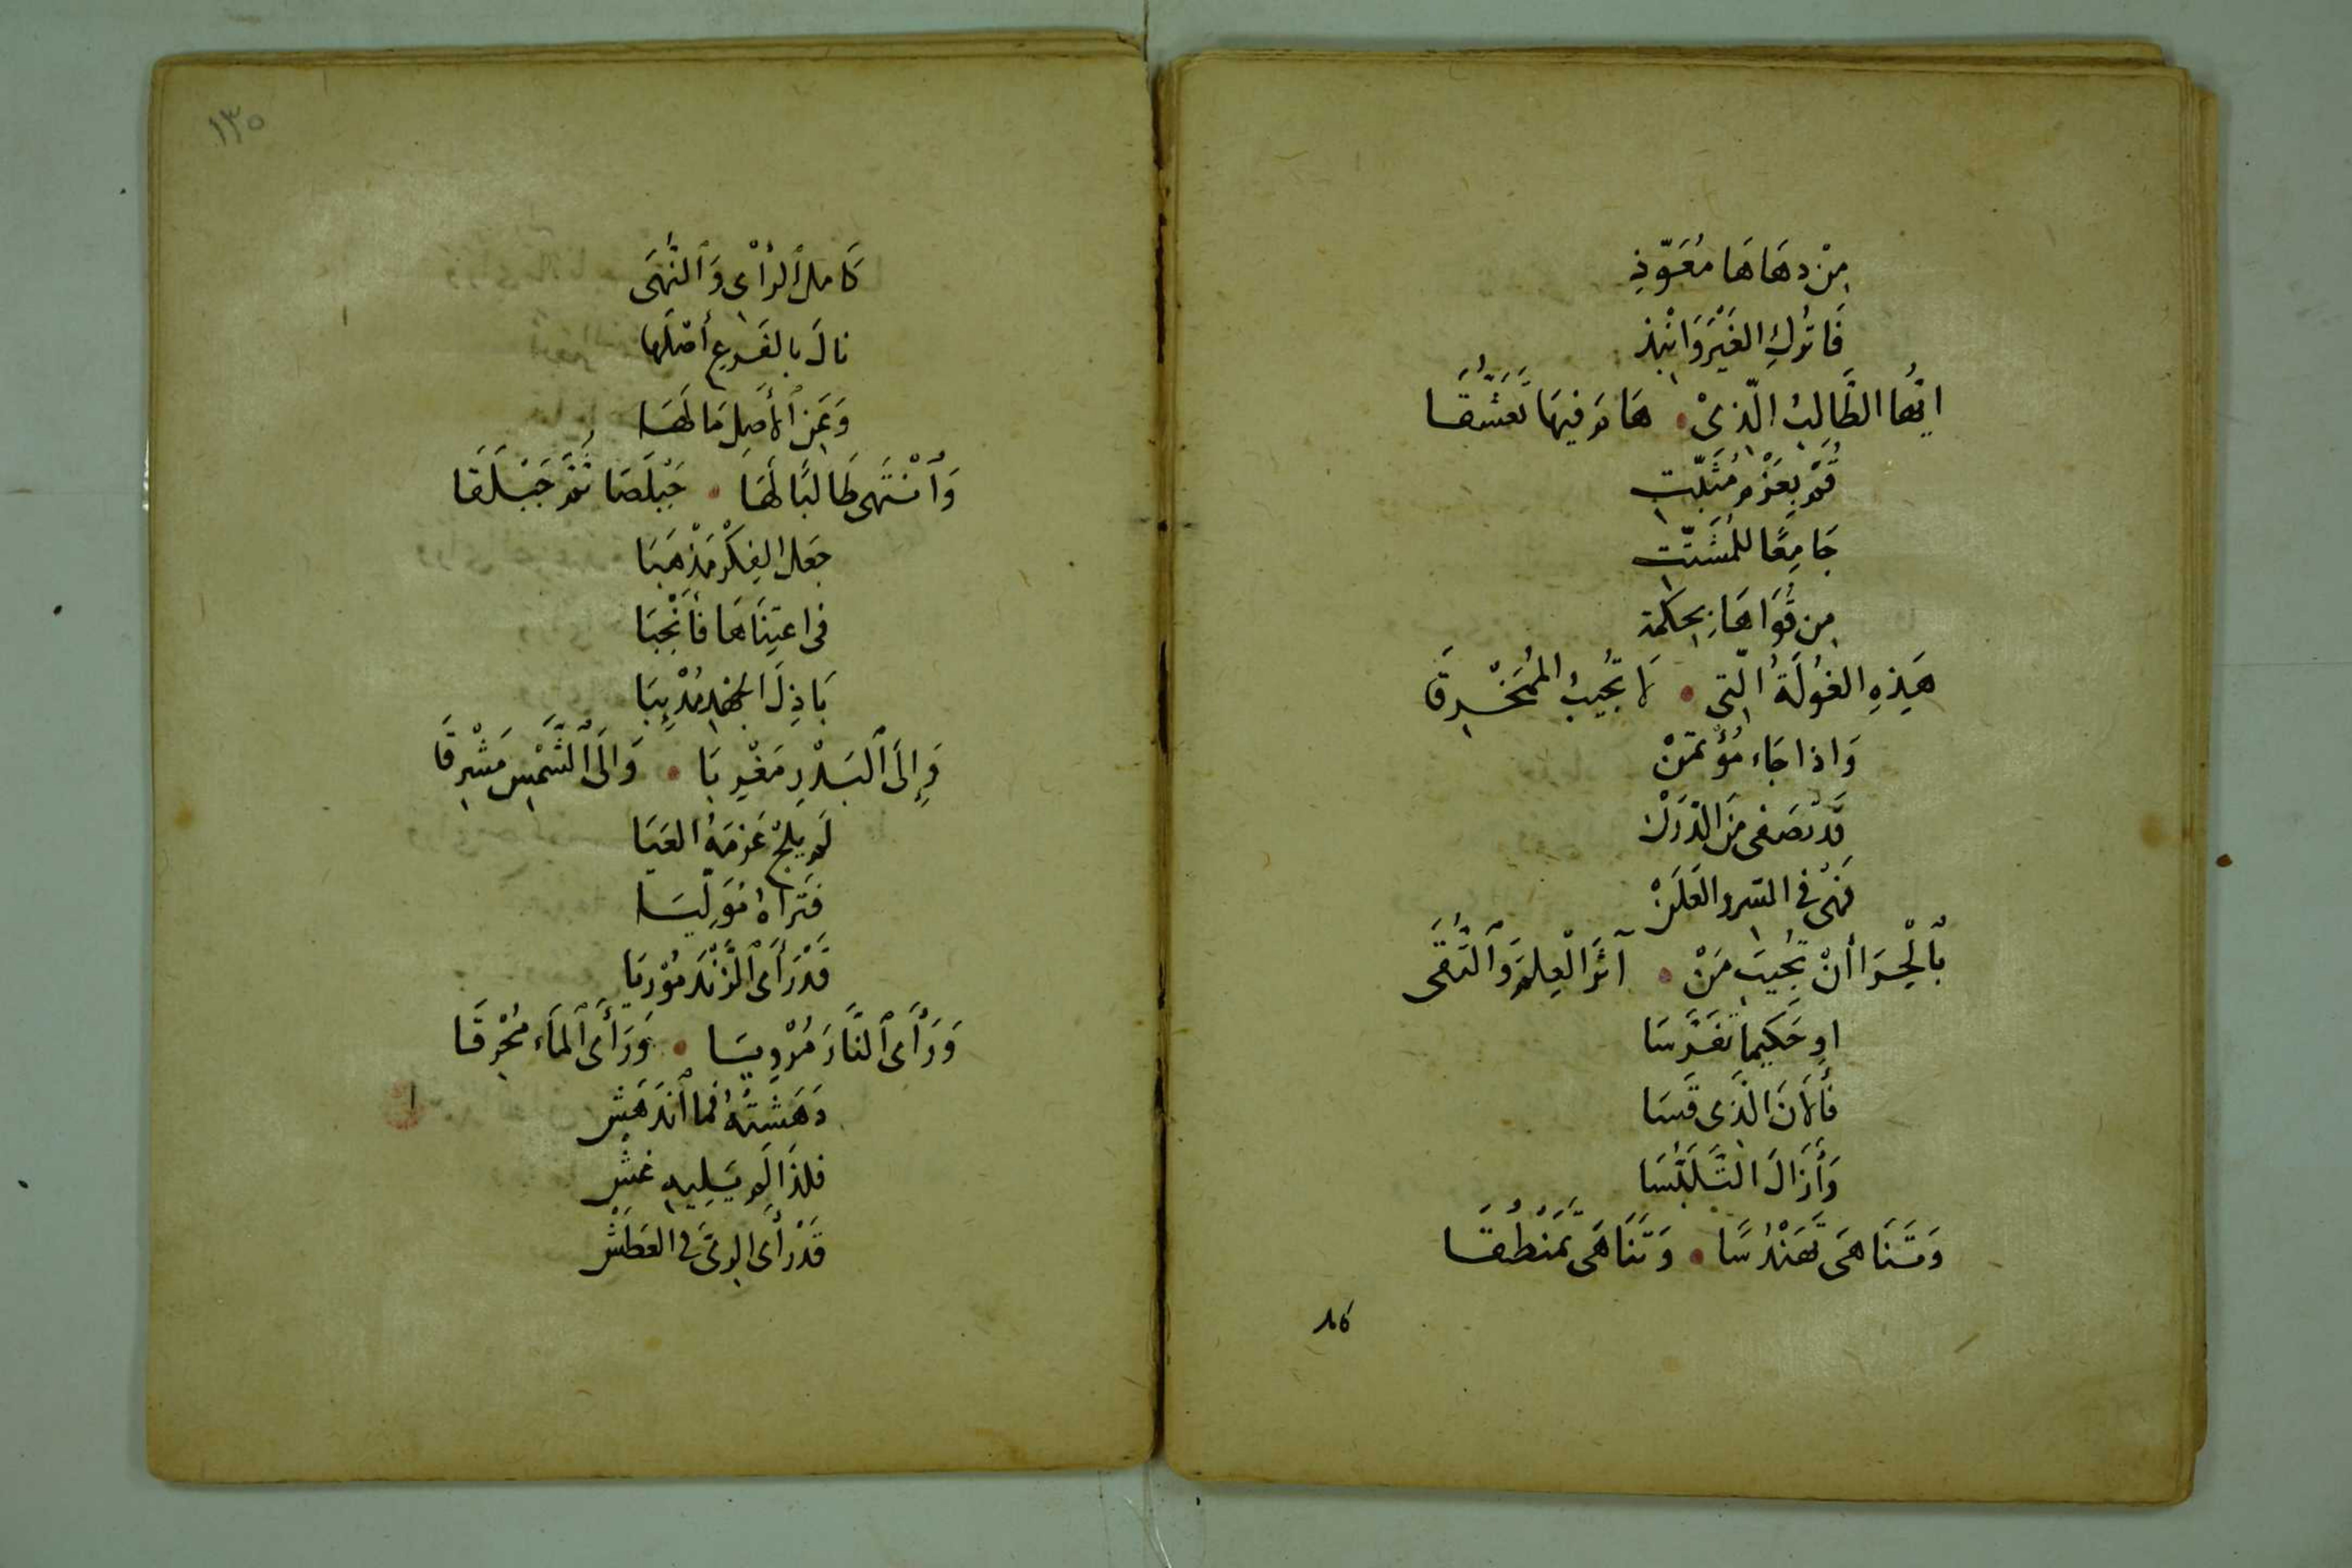 مِنْ دهَاهَا مُعَوّذِ
فَاتركِ الغَيْرَ وَانْبذ
ايّها الطَّالِبُ الّذِىْ • هَامَ فِيهَا تَعَشُّقَا
قُمْ بِعَزْمٍ مُثَبّتِ
جَامِعًا للمُشَتّتِ
مِن قُوَاهَا بِحِكمَة
هَذِهِ الغُولَةُ الّتى • لَا تُجِيبُ المُمَخْرِقَا
وَاذا جَاء مُؤْتمَنْ
قَدْ تصَفى مِنَ الدّرَنْ
فَهْىَ فى السّر والعَلَنْ
بِٱلْحِرَا أنْ تُجِيبَ مَنْ • آثَرَ الْعِلمَ وَٱلتُّقَى
او حَكِيما تَفَرَّسَا
فَألَانَ الّذى قَسَا
وَأَزَالَ التَّلَبُّسَا
وَتَنَاهَى تَهَنْدُسًا • وَتَنَاهَى تَمَنْطُقَا
٨٥
١٣٥
كَامل ٱلرأْىِ وَٱلنُّهَى
نالَ بالفَرعِ أصْلَها
وَعَنِ ٱلأصلِ مَا لَهَا
وَٱنْتَهى طَالبًا لَهَا • جَبَلصَا ثُمَّ جَبَلَقَا
جَعَلَ الفِكْرَ مَذهَبَا
فى اعتِنَاهَا فَأَنْجبَا
بَاذِلَ الجهْدِ مُدْئِبَا
وَإِلَى ٱلبَدْرِ مَغْرِبَا • وَالَى ٱلشَّمْسِ مَشْرِقَا
لَم يلِجْ عَزمَهُ العَيَا
فَتَراهُ مُوَلّيَا
قَدْ رَأَى ٱلزَّنْدَ مُوْرِيَا
وَرَأَى ٱلنَّارَ مُرْوِيَا • وَرَأَى ٱلمَاء مُحْرِقَا
دَهَشَتْهُ فما ٱندَهَشْ
فلذَا لَم يَلِيهِ غشْ
قَدْ رَأى الرىَّ فى العَطَشْ